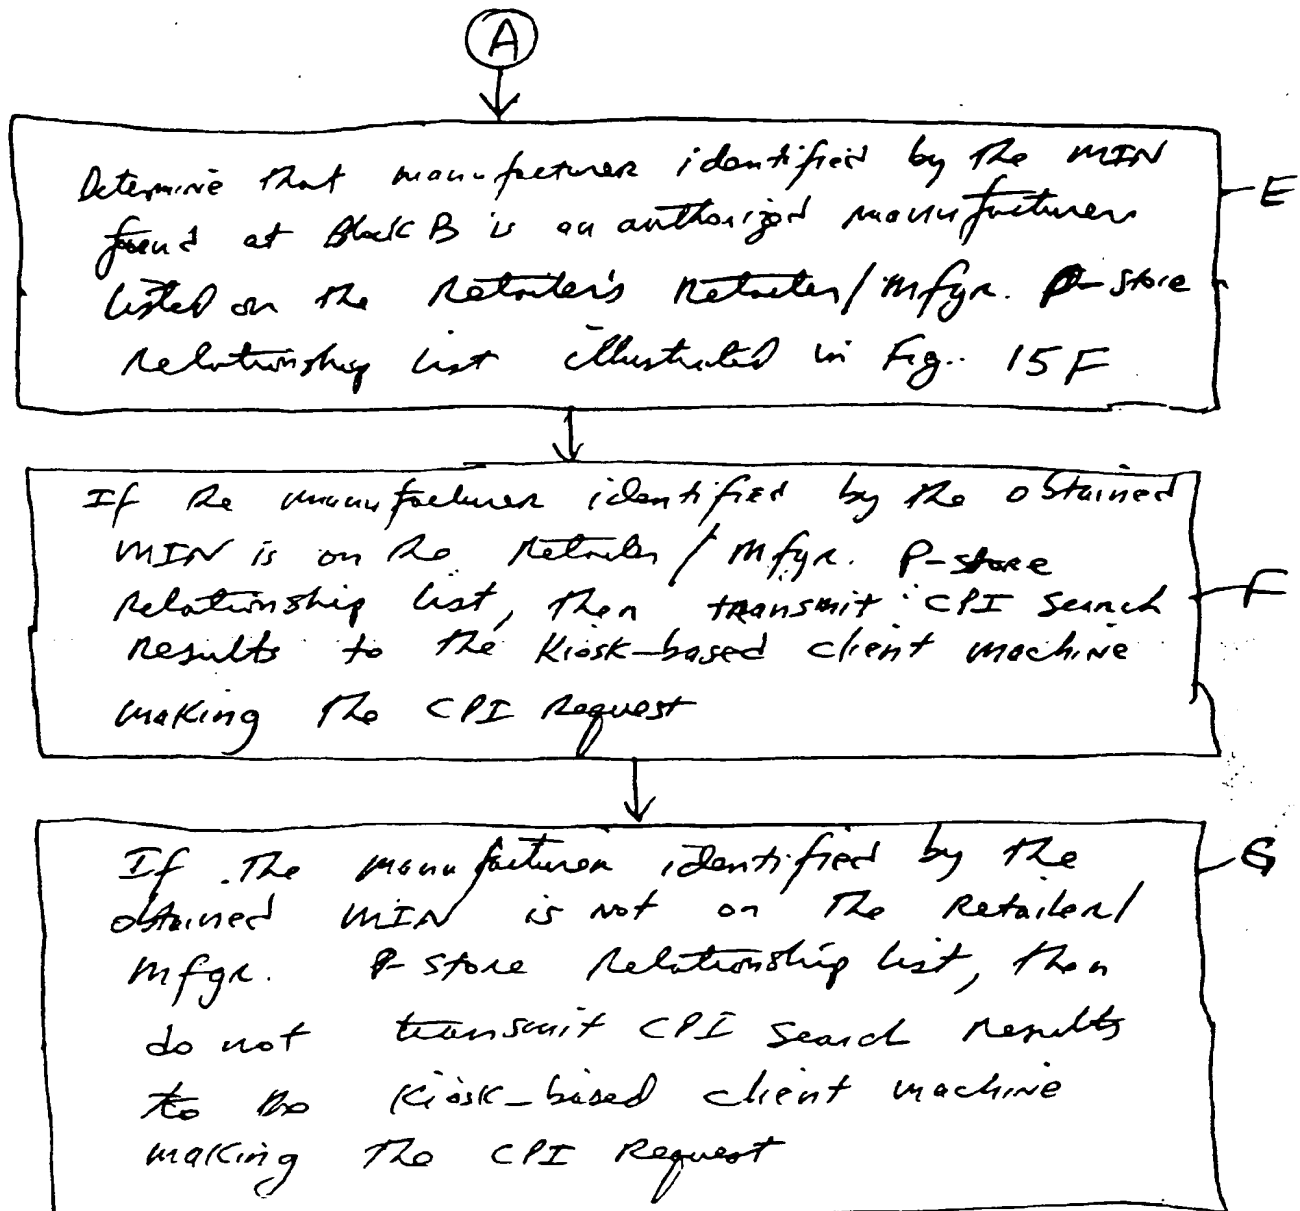 A
Determine that manufacturer identified by the MIN
found at Block B is an authorized manufacturer
listed on the Retailer's Retailer/Mfgr. P-store
Relationship list illustrated in Fig. 15F
E
If the manufacturer identified by the obtained
MIN is on the Retailer/Mfgr. P-store
Relationship list, then transmit CPI Search
Results to the Kiosk-based client machine
making the CPI Request
F
If the manufacturer identified by the
obtained MIN is not on the Retailer/
Mfgr. P-store Relationship list, then
do not transmit CPI Search Results
to the Kiosk-based client machine
making the CPI Request
G